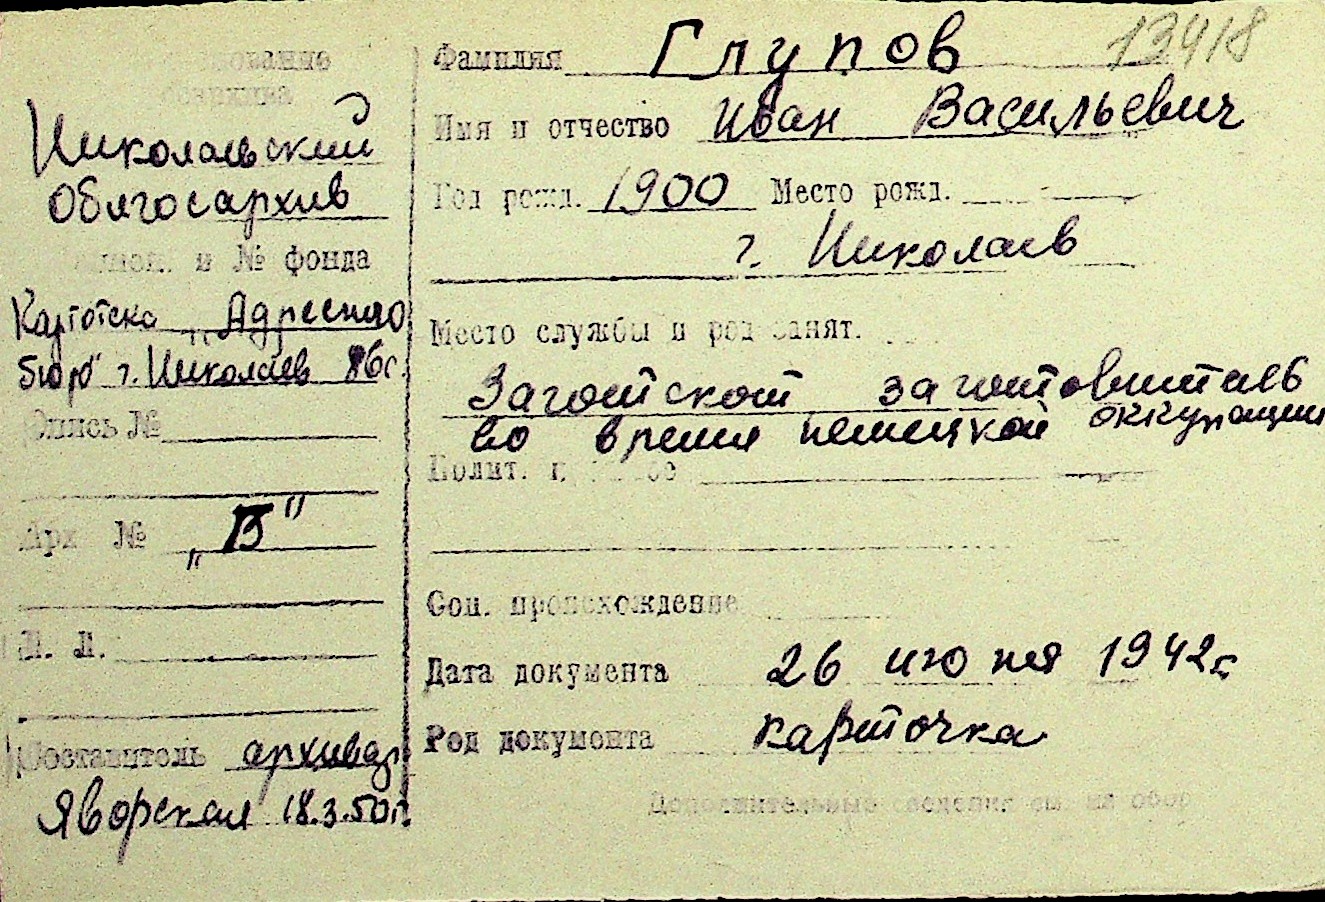 13418
Фамилия Глупов
Имя и отчество Иван Васильевич
Год рожд. 1900 Место рожд.
г. Николаев
Место службы и род занят.
Заготскот заготовитель
во время немецкой оккупации
Полит.
Соц. происхождение
Дата документа 26 июня 1942 г.
Род документа карточка
Дополнительные сведения см. на обор
Николаевский
Облгосархив
и № фонда
Картотека „Адресного
бюро" г. Николаев
Опись №
Арх №
„В"
Л. Л.
Составитель архивар
Яворская 18.3.50 г.